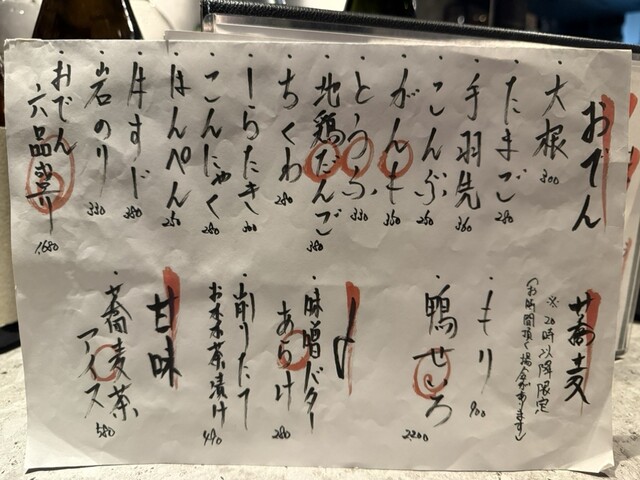 おでん
・大根 300
・たまご 280
・手羽先 360
・こんぶ 260
・がんも 360
・とうふ 330
・地鶏だんご 380
・ちくわ 280
・しらたき 300
・こんにゃく 280
・はんぺん 250
・牛すじ 380
・岩のり 330
・おでん
六品盛り 1680
蕎麦
※20時以降限定
(お時間頂く場合があります)
・もり 900
・鴨せいろ 2200
〆
・味噌バター
あらけ 280
・削りたて
お茶漬け 490
甘味
・蕎麦茶
アイス 580